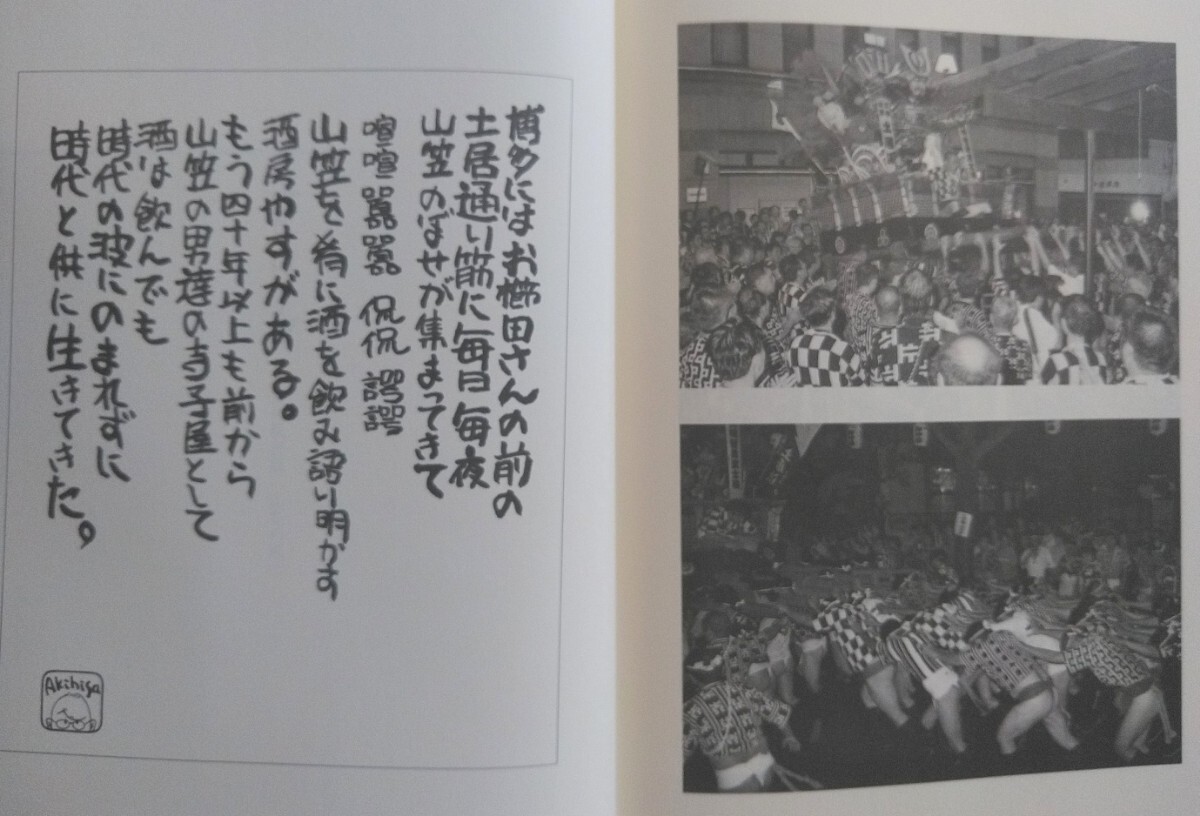 博多にはお櫛田さんの前の
土居通り筋に毎日毎夜
山笠のぼせが集まってきて
喧喧囂囂 侃侃諤諤
山笠を肴に酒を飲み語り明かす
酒房やすがある。
もう四十年以上も前から
山笠の男達の寺子屋として
酒は飲んでも
時代の波にのまれずに
時代と供に生きてきた。
Akihisa